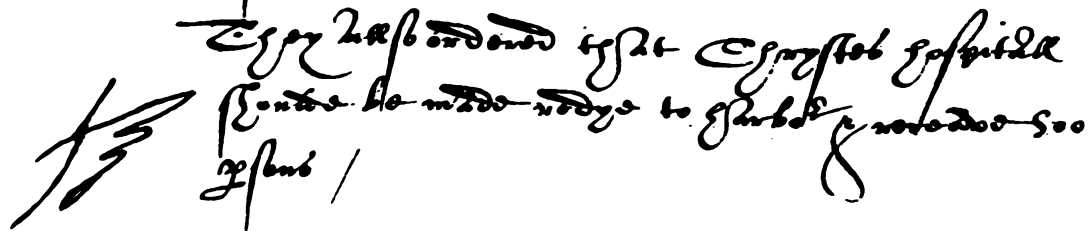 They allso ordered that Chrystes hospitall
shoulde be made redye to harbor & receave 500
psons /